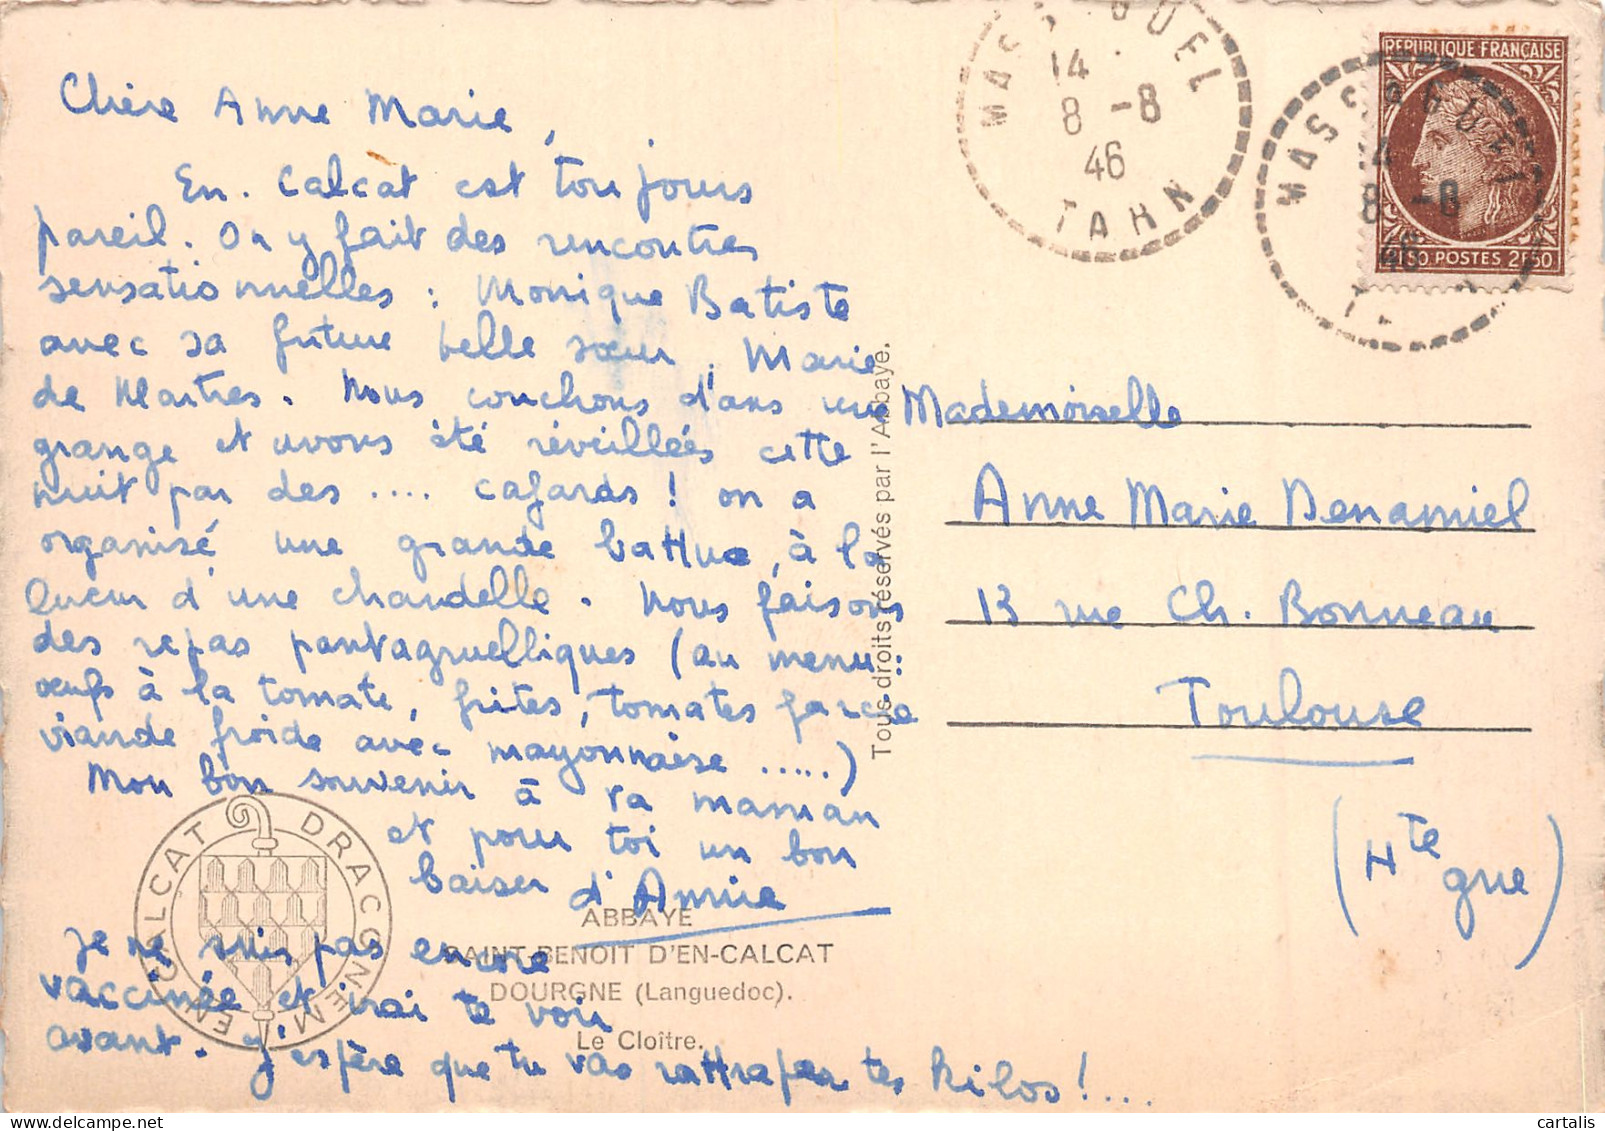 Chère Anne Marie,
En. Calcat est toujours
pareil. On y fait des rencontres
sensationnelles : Monique Batiste
avec sa future belle sœur, Marie
de Martres. Nous couchons dans une
grange et avons été réveillées cette
nuit par des .... cafards ! on a
organisé une grande battue, à la
lueur d'une chandelle. Nous faisons
des repas pantagruelliques (au menu :
œufs à la tomate, frites, tomates farcie
viande froide avec mayonnaise .....)
Mon bon souvenir à ta maman
et pour toi un bon
baiser d'Annie
Je ne suis pas encore
vaccinée et irai te voir
avant. J'espère que tu vas rattraper tes kilos !...
Mademoiselle
Anne Marie Denamiel
13 rue Ch. Bonneau
Toulouse
(Hte
gne)
14
8 -8
46
TARN
REPUBLIQUE FRANÇAISE
2F50 POSTES 2F50
MASSAGUEL
14
8 -8
46
Tous droits réservés par l'Abbaye.
EN CALCAT DRACONEM
ABBAYE
SAINT-BENOIT D'EN-CALCAT
DOURGNE (Languedoc).
Le Cloître.
cartalis